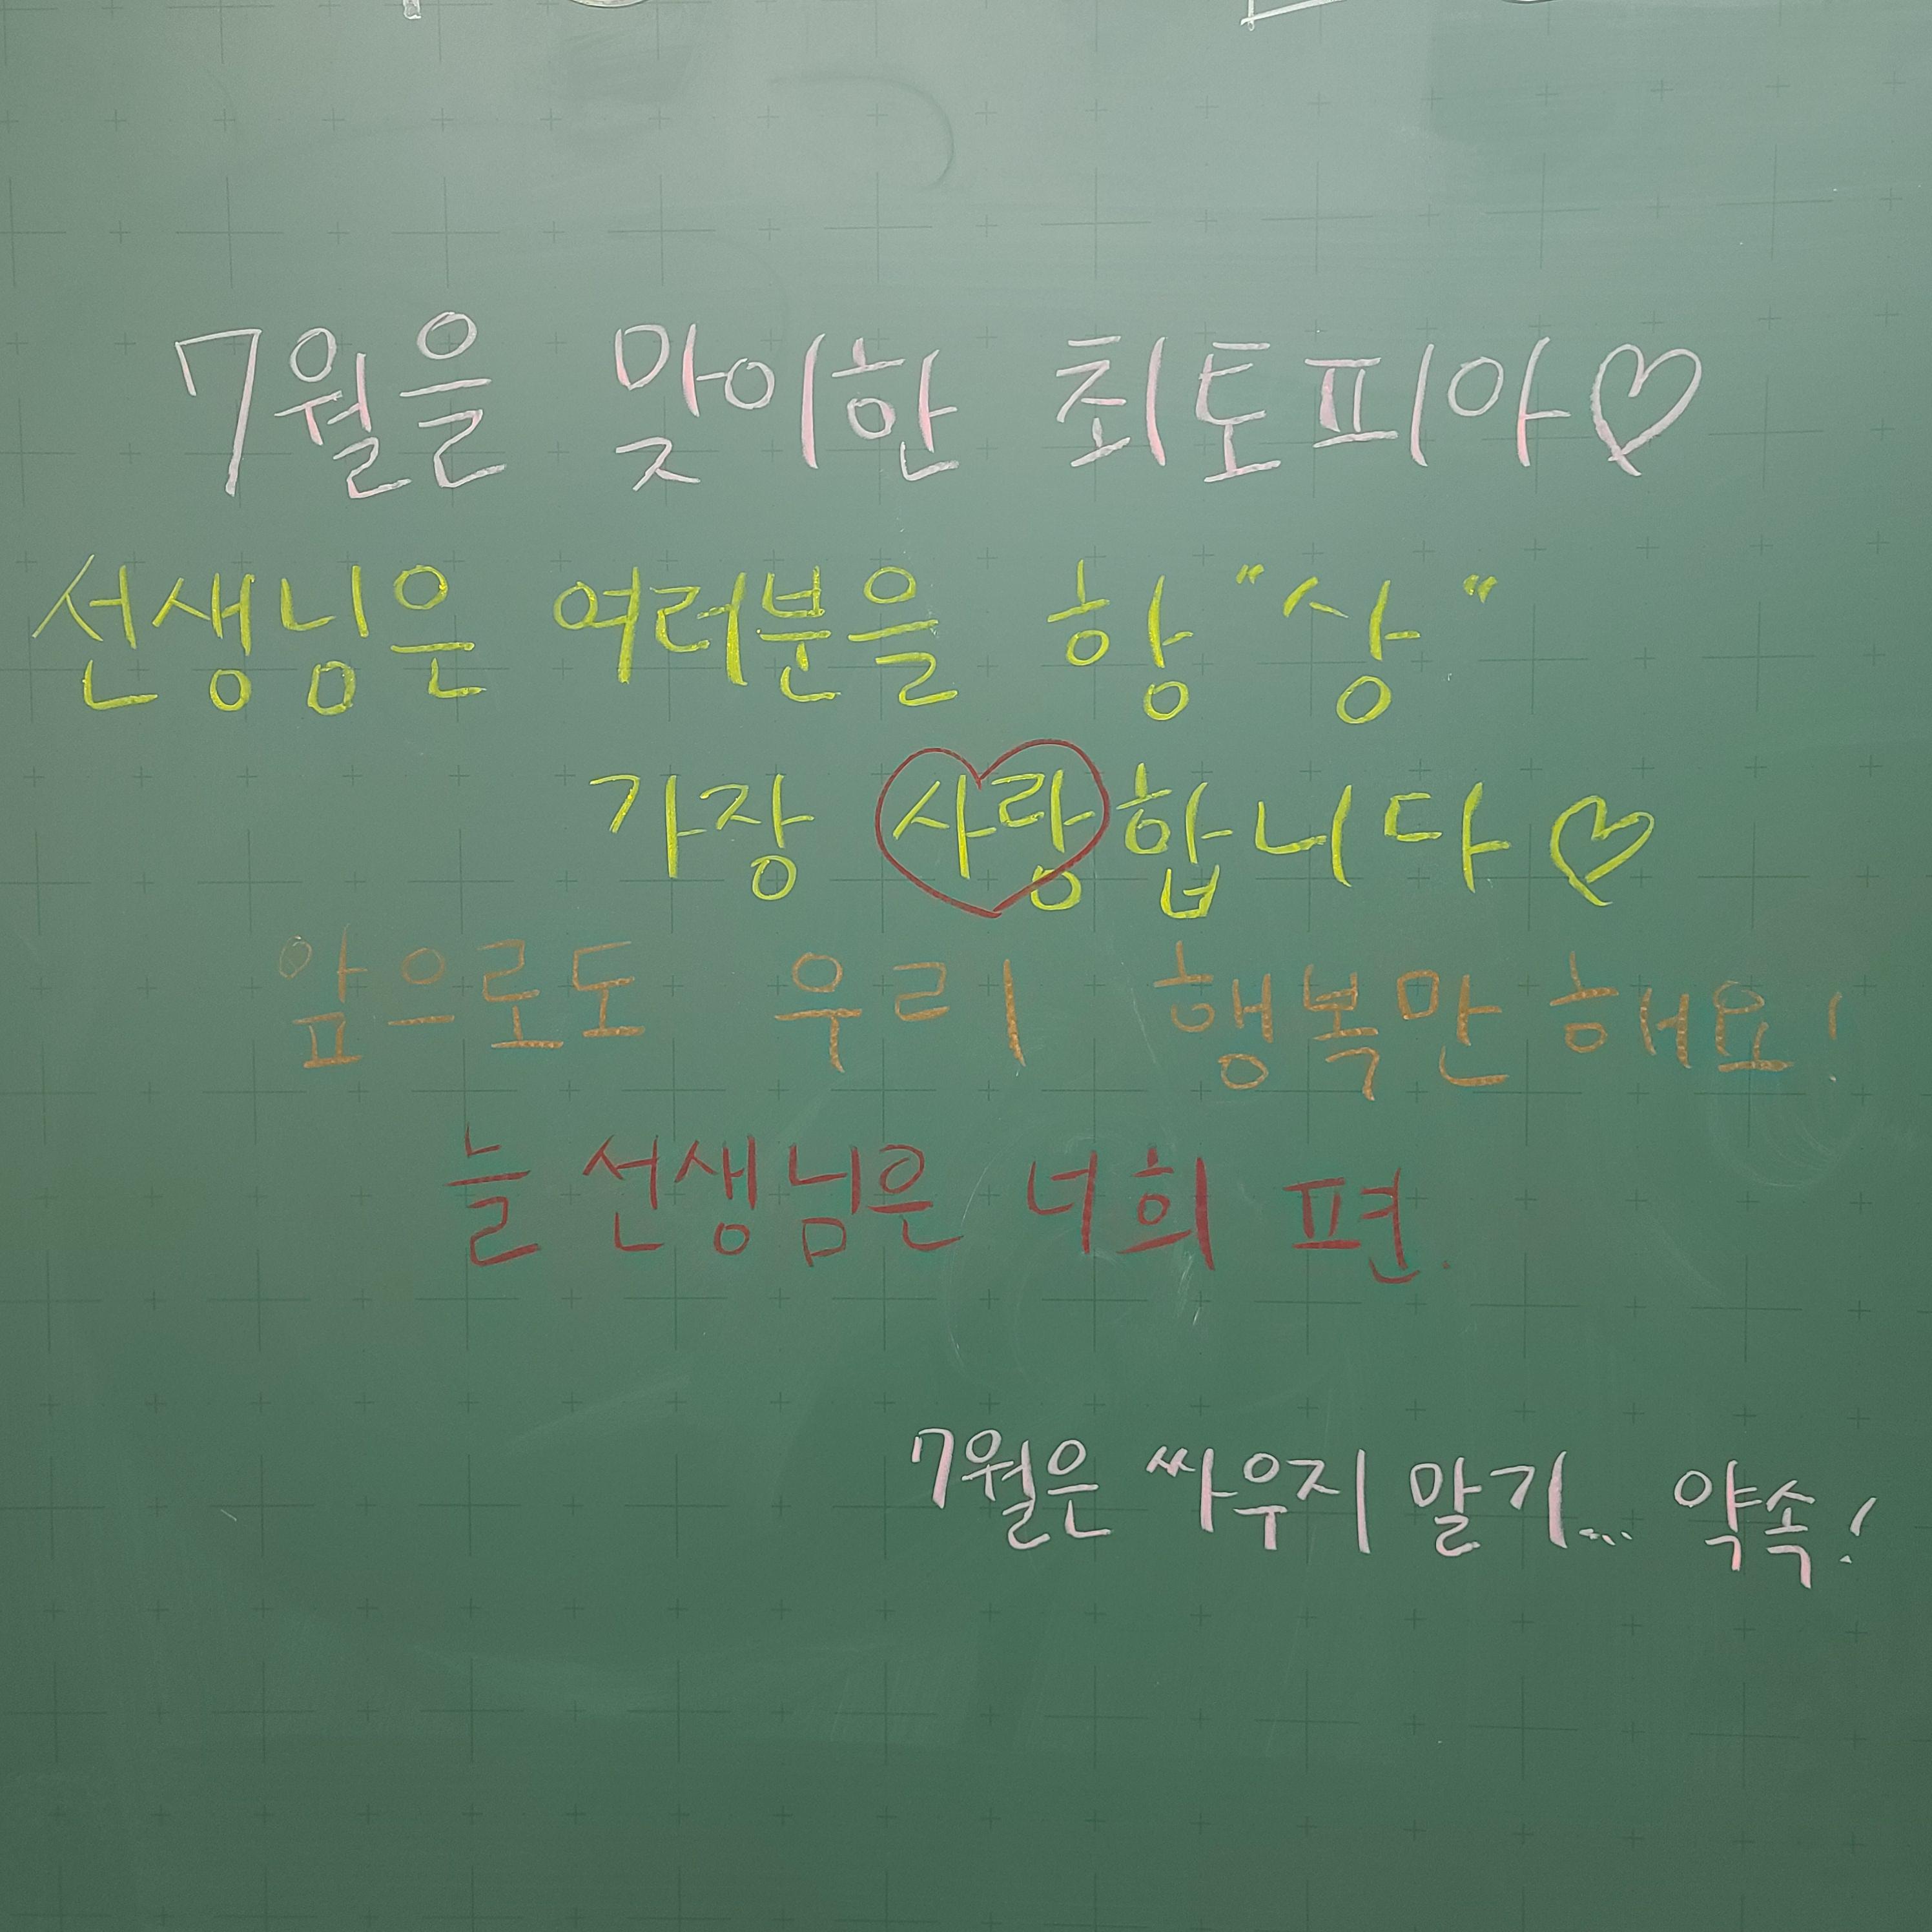 7월을 맞이한 최토피아♡
선생님은 여러분을 항 "상"
가장 사랑합니다♡
앞으로도 우리 행복만 해요!
늘 선생님은 너희 편.
7월은 싸우지 말기... 약속!